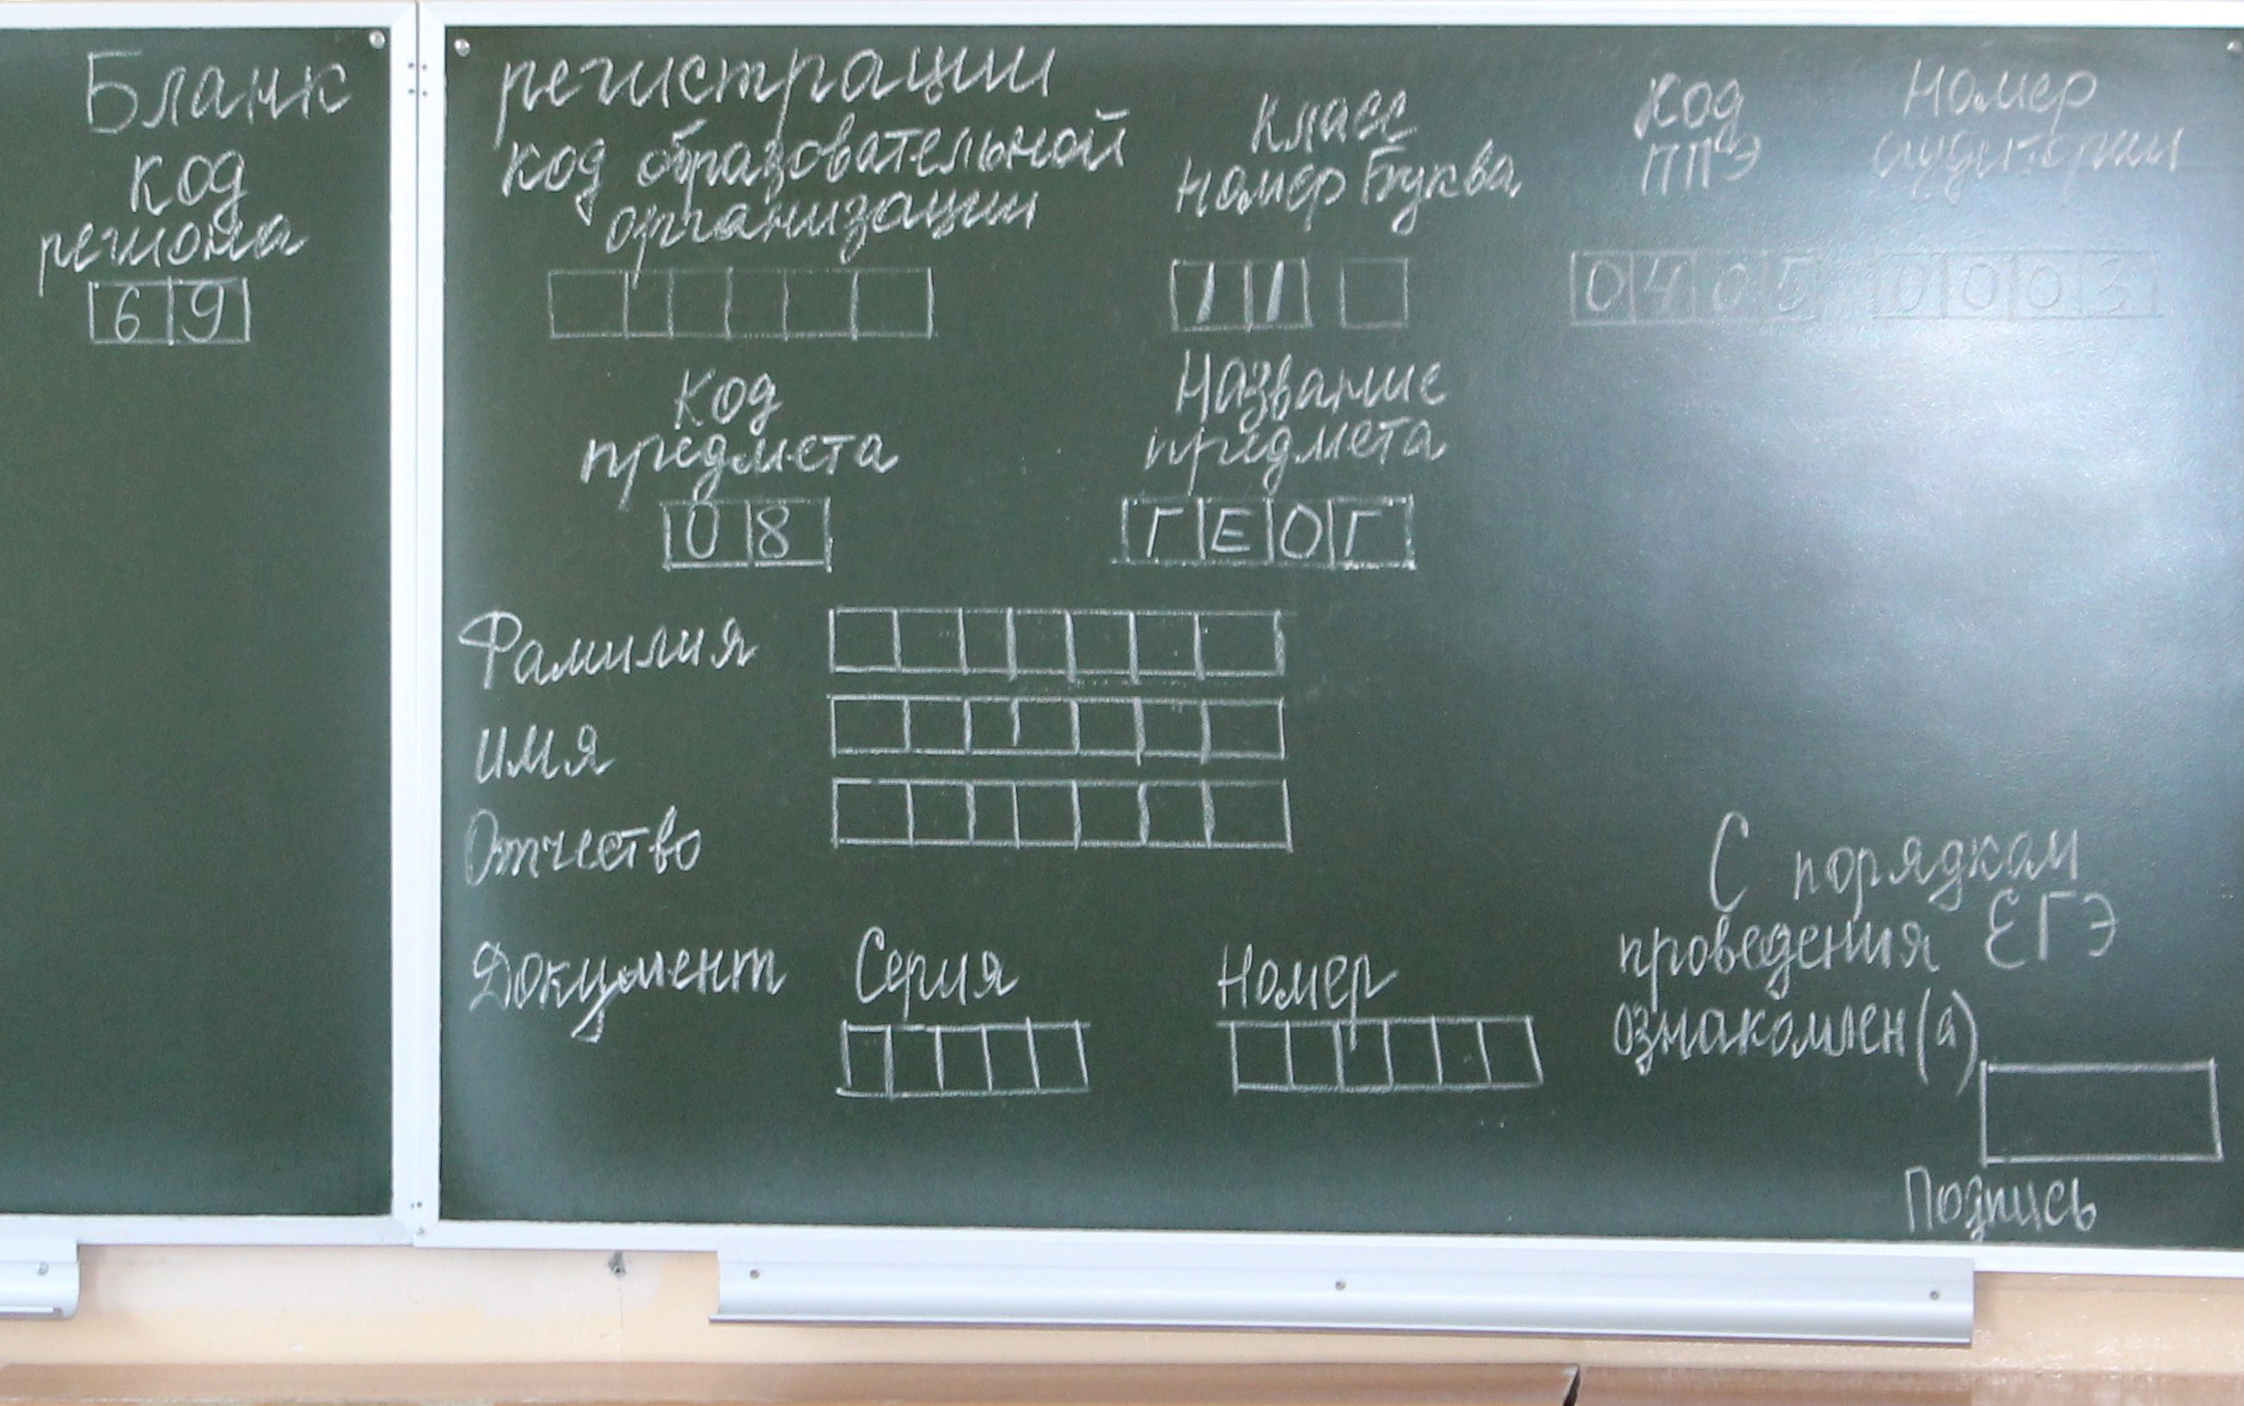 Бланк регистрации
код региона
69
код образовательной
организации
Класс
номер Буква
11
Код
ППЭ
0405
Номер
аудитории
0003
Код
предмета
08
Название
предмета
ГЕОГ
Фамилия
Имя
Отчество
Документ Серия Номер
С порядком
проведения ЕГЭ
ознакомлен(а)
Подпись